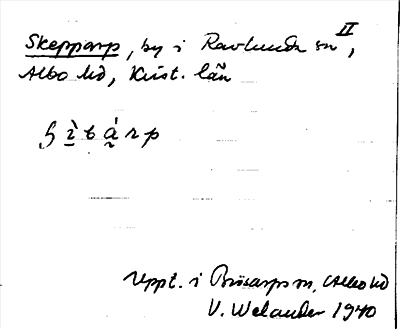 Skepparp, by i Ravlunda sn II,
Albo hd, Krist. län
ʃì̱bá̰rp
Uppt. i Brösarps sn, Albo hd
V. Welander 1940